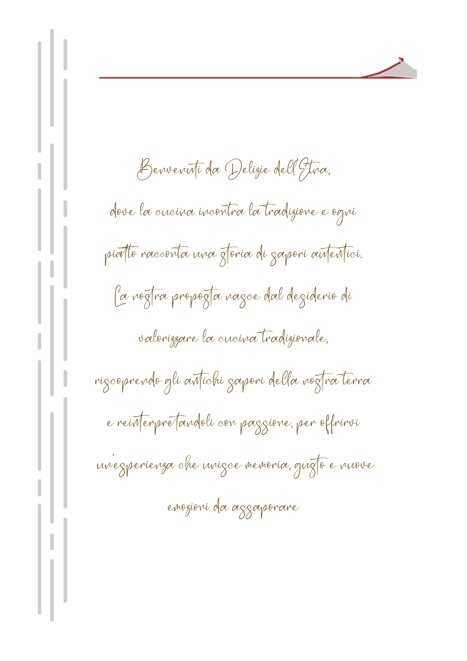 Benvenuti da Delizie dell'Etna,
dove la cucina incontra la tradizione e ogni
piatto racconta una storia di sapori autentici.
La nostra proposta nasce dal desiderio di
valorizzare la cucina tradizionale,
riscoprendo gli antichi sapori della nostra terra
e reinterpretandoli con passione, per offrirvi
un'esperienza che unisce memoria, gusto e nuove
emozioni da assaporare